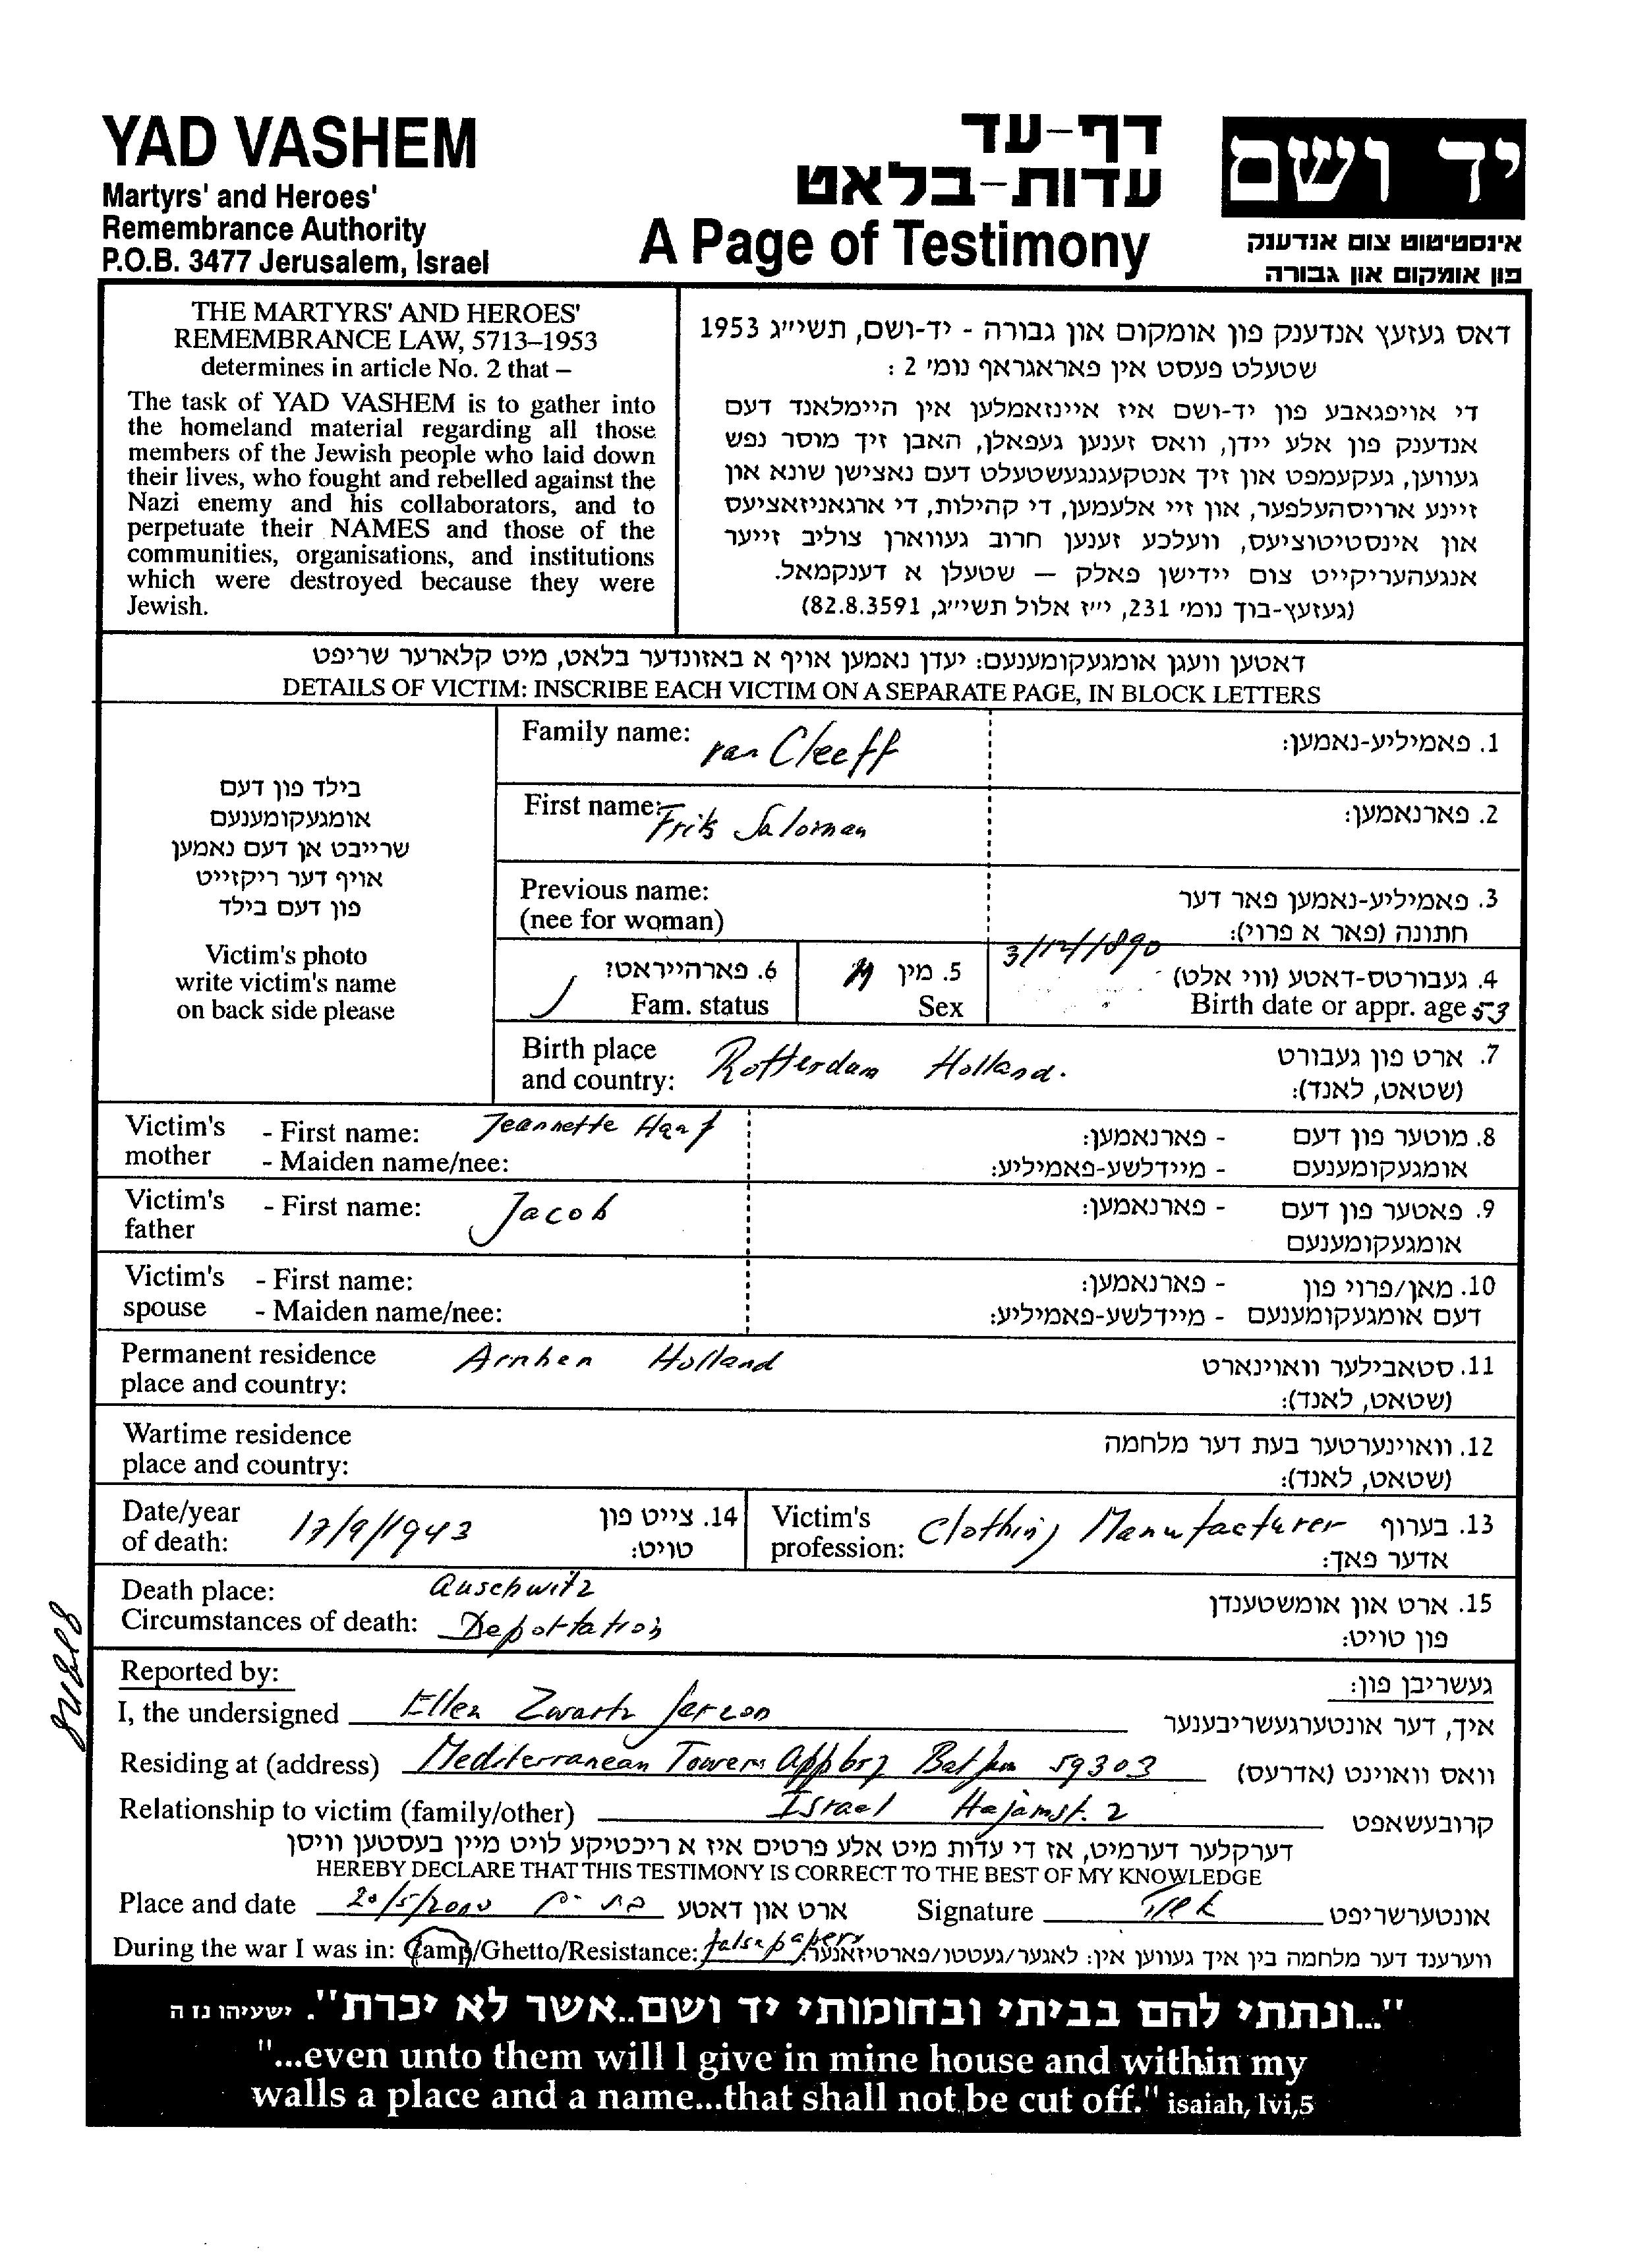 YAD VASHEM
Martyrs' and Heroes'
Remembrance Authority
P.O.B. 3477 Jerusalem, Israel
דף-עד
עדות-בלאט
A Page of Testimony
יד ושם
אינסטיטוט צום אנדענק
פון אומקום און גבורה
THE MARTYRS' AND HEROES'
REMEMBRANCE LAW, 5713–1953
determines in article No. 2 that –
The task of YAD VASHEM is to gather into
the homeland material regarding all those
members of the Jewish people who laid down
their lives, who fought and rebelled against the
Nazi enemy and his collaborators, and to
perpetuate their NAMES and those of the
communities, organisations, and institutions
which were destroyed because they were
Jewish.
דאס געזעץ אנדענק פון אומקום און גבורה - יד-ושם, תשי״ג 1953
שטעלט פעסט אין פאראגראף נומ׳ 2 :
די אויפגאבע פון יד-ושם איז איינזאמלען אין היימלאנד דעם
אנדענק פון אלע יידן, וואס זענען געפאלן, האבן זיך מוסר נפש
געווען, געקעמפט און זיך אנטקעגנגעשטעלט דעם נאצישן שונא און
זיינע ארויסהעלפער, און זיי אלעמען, די קהילות, די ארגאניזאציעס
און אינסטיטוציעס, וועלכע זענען חרוב געווארן צוליב זייער
אנגעהעריקייט צום יידישן פאלק — שטעלן א דענקמאל.
(געזעץ-בוך נומ׳ 231, י״ז אלול תשי״ג, 82.8.3591)
דאטען וועגן אומגעקומענעם: יעדן נאמען אויף א באזונדער בלאט, מיט קלארער שריפט
DETAILS OF VICTIM: INSCRIBE EACH VICTIM ON A SEPARATE PAGE, IN BLOCK LETTERS
בילד פון דעם
אומגעקומענעם
שרייבט אן דעם נאמען
אויף דער ריקזייט
פון דעם בילד
Victim's photo
write victim's name
on back side please
Family name: van Cleeff 1. פאמיליע-נאמען:
First name: Frits Saloman 2. פארנאמען:
Previous name: 3. פאמיליע-נאמען פאר דער
(nee for woman) חתונה (פאר א פרוי):
6. פארהייראט? 5. מין M 3/12/1890 4. געבורטס-דאטע (ווי אלט)
Fam. status Sex Birth date or appr. age 53
Birth place Rotterdam Holland. 7. ארט פון געבורט
and country: (שטאט, לאנד):
Victim's - First name: Jeannette Haaf - פארנאמען: 8. מוטער פון דעם
mother - Maiden name/nee: - מיידלשע-פאמיליע: אומגעקומענעם
Victim's - First name: Jacob - פארנאמען: 9. פאטער פון דעם
father אומגעקומענעם
Victim's - First name: - פארנאמען: 10. מאן/פרוי פון
spouse - Maiden name/nee: - מיידלשע-פאמיליע: דעם אומגעקומענעם
Permanent residence Arnhen Holland 11. סטאבילער וואוינארט
place and country: (שטאט, לאנד):
Wartime residence 12. וואוינערטער בעת דער מלחמה
place and country: (שטאט, לאנד):
Date/year 17/9/1943 14. צייט פון Victim's Clothing Manufacturer 13. בערוף
of death: טויט: profession: אדער פאך:
Death place: Auschwitz 15. ארט און אומשטענדן
Circumstances of death: Deportation פון טויט:
Reported by: געשריבן פון:
I, the undersigned Ellen Zwartz Jerzon איך, דער אונטערגעשריבענער
Residing at (address) Mediterranean Towers App 59303 וואס וואוינט (אדרעס)
Relationship to victim (family/other) Israel 2 קרובעשאפט
דערקלער דערמיט, אז די עדות מיט אלע פרטים איז א ריכטיקע לויט מיין בעסטען וויסן
HEREBY DECLARE THAT THIS TESTIMONY IS CORRECT TO THE BEST OF MY KNOWLEDGE
Place and date 20/5/2000 בת ים ארט און דאטע Signature אונטערשריפט
During the war I was in: Camp/Ghetto/Resistance: false papers ווערענד דער מלחמה בין איך געווען אין: לאגער/געטטו/פארטיזאנער:
"...ונתתי להם בביתי ובחומותי יד ושם..אשר לא יכרת". ישעיהו נז ה
"...even unto them will I give in mine house and within my
walls a place and a name...that shall not be cut off." isaiah, lvi,5